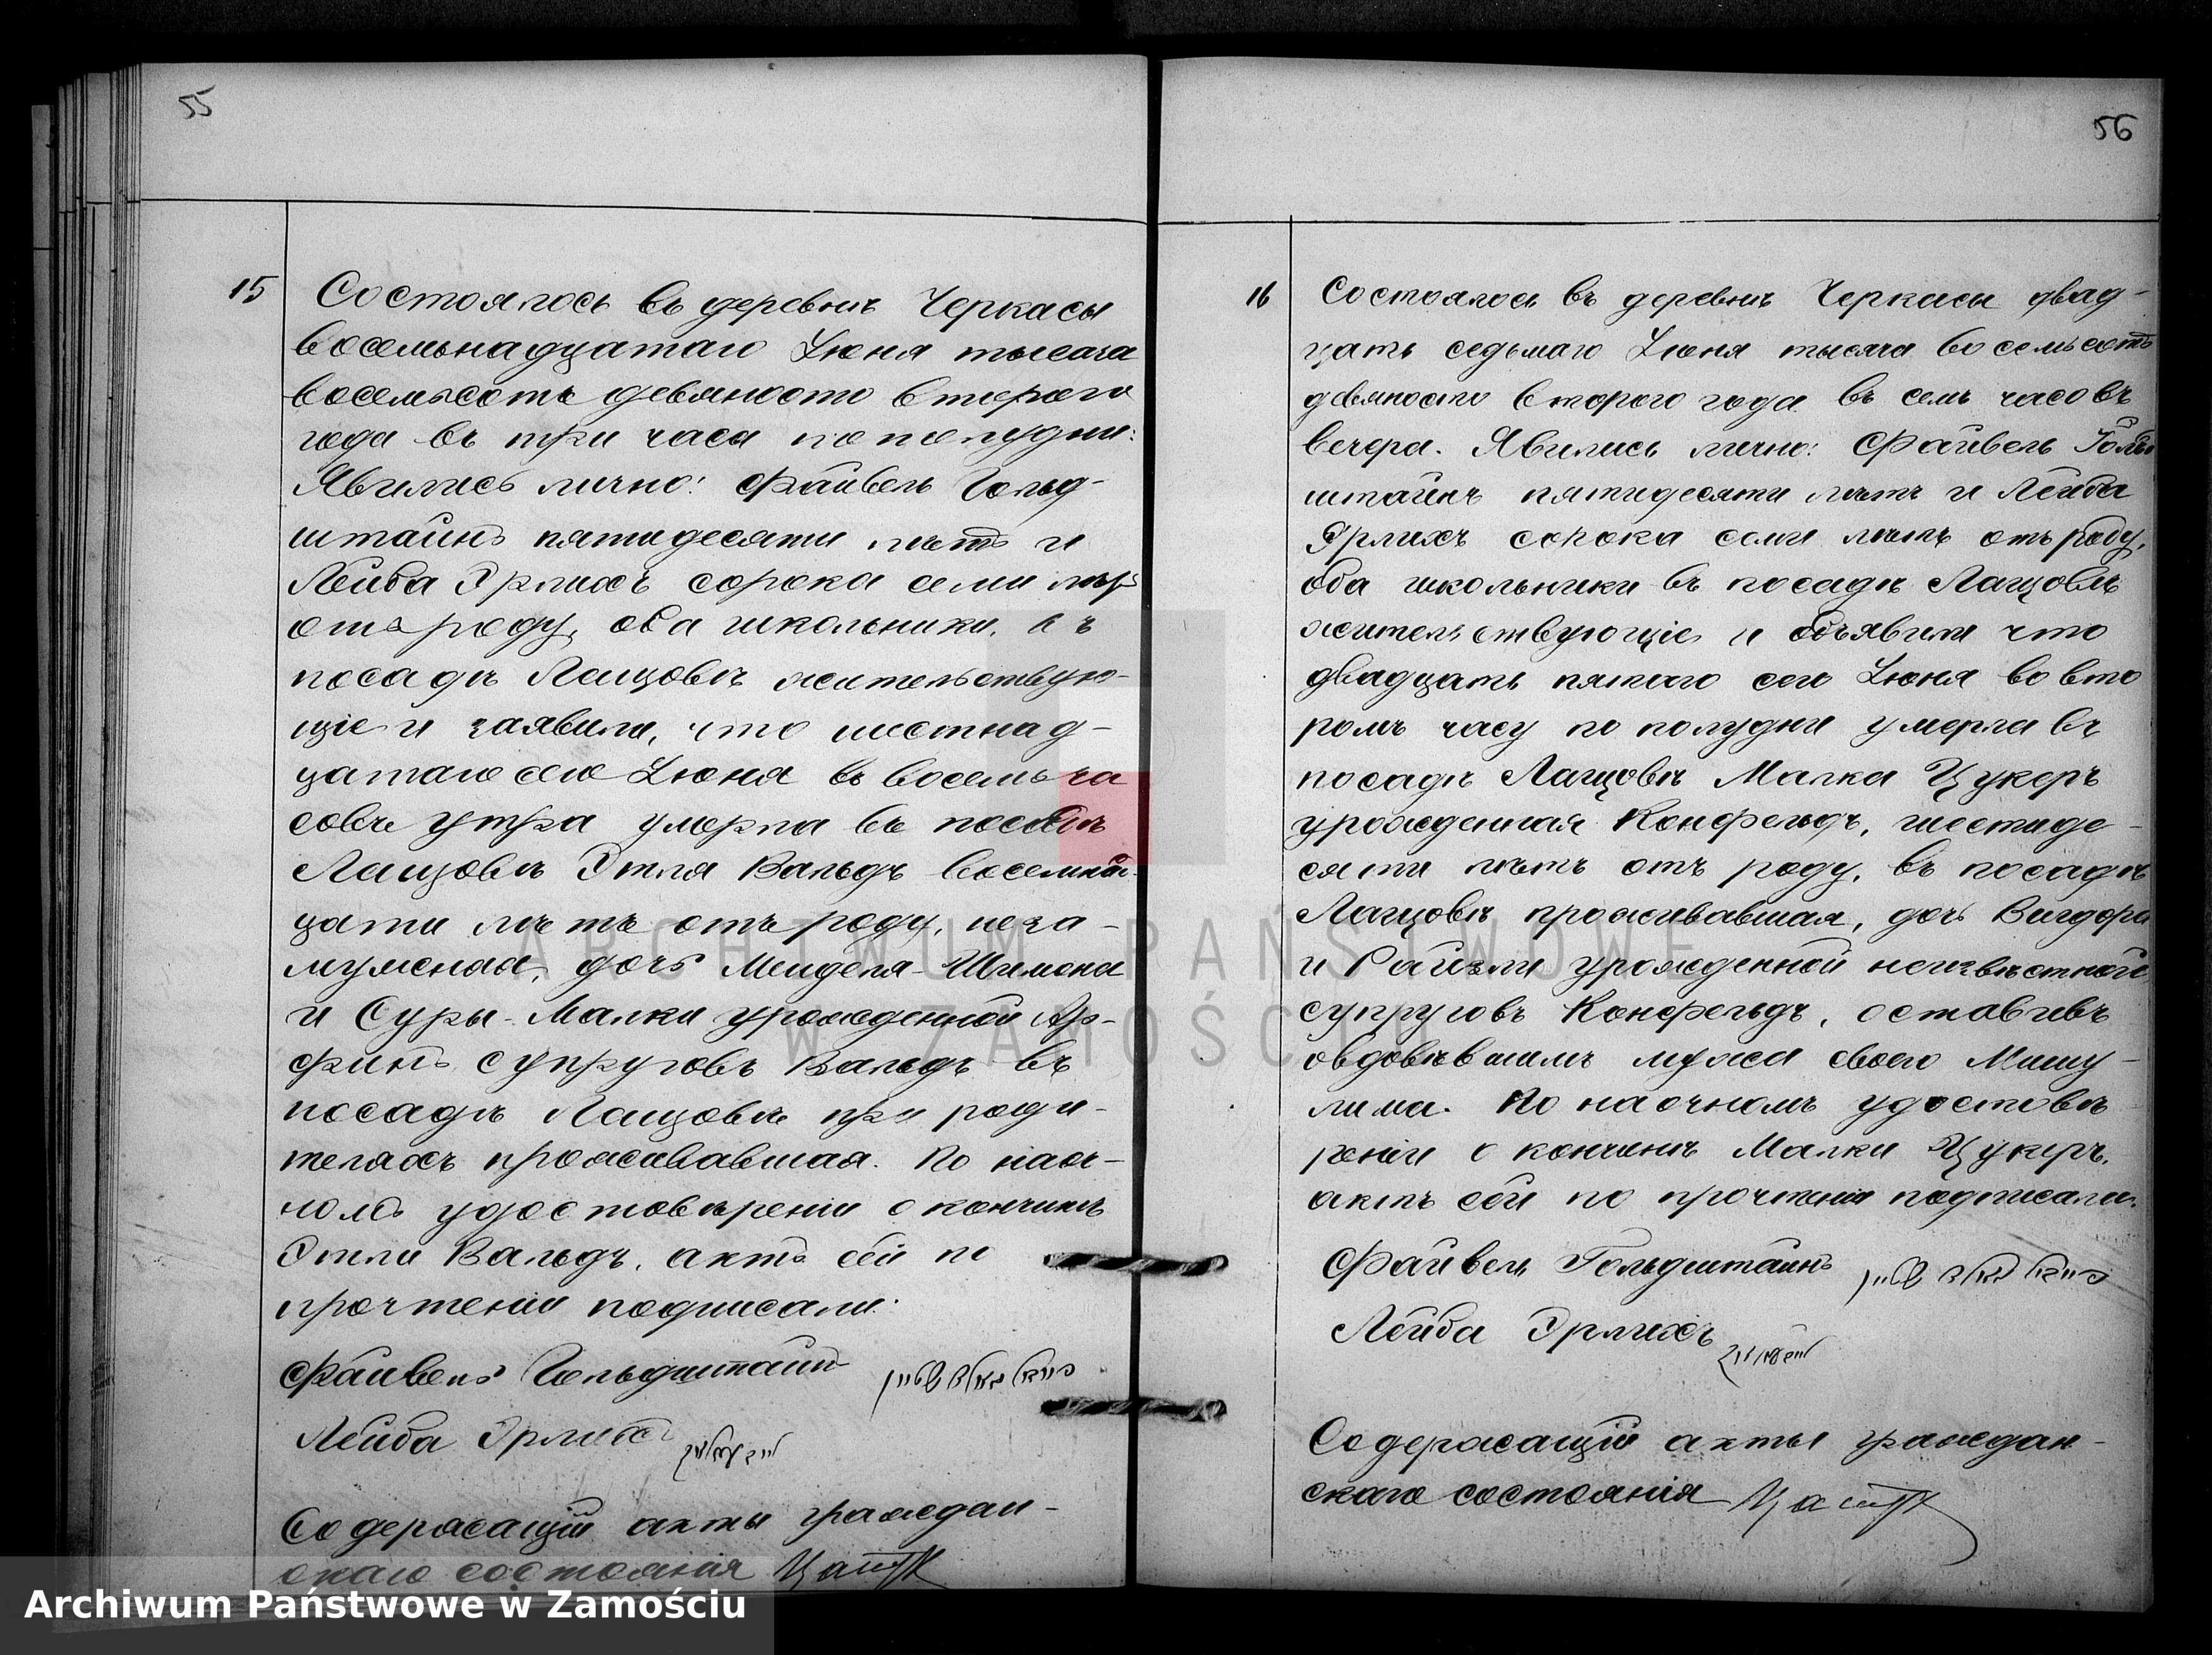 55
15
Состоялось въ деревнѣ Черкасы
восемьнадцатаго Іюня тысяча
восемьсотъ девяносто втораго
года въ три часа по полудни:
Явились лично: Файвель Гольд-
штайнъ пятидесяти лѣтъ и
Лейба Эрлихъ сорока семи лѣтъ
отъ роду, оба школьники, въ
посадѣ Лащовѣ жительствую-
щіе и заявили, что шестнад-
цатаго сего Іюня въ восемь ча
совъ утра умерла въ посадѣ
Лащовѣ Этля Вальдъ восемнад-
цати лѣтъ отъ роду, неза-
мужная, дочь Менделя-Шимона
и Суры-Малки урожденной
супруговъ Вальдъ въ
посадѣ Лащовѣ при роди-
теляхъ проживавшая. По наоч-
номъ удостовѣреніи о кончинѣ
Этли Вальдъ, актъ сей по
прочтеніи подписали:
Файвель Гольдштайнъ פייוול גאלדשטיין
Лейба Эрлихъ לייב ערליך
Содержащій акты граждан-
скаго состоянія
56
16
Состоялось въ деревнѣ Черкасы двад-
цать седьмаго Іюня тысяча восемьсотъ
девяносто второго года въ семь часовъ
вечера. Явились лично: Файвель Гольд
штайнъ пятидесяти лѣтъ и Лейба
Эрлихъ сорока семи лѣтъ отъ роду,
оба школьники въ посадѣ Лащовѣ
жительствующіе и объявили что
двадцать пятого сего Іюня во вто
ромъ часу по полудни умерла въ
посадѣ Лащовѣ Малка Цукеръ
урожденная Конфельдъ, шестиде-
сяти лѣтъ отъ роду, въ посадѣ
Лащовѣ проживавшая, дочь Вигдора
и Райзли урожденной неизвѣстной
супруговъ Конфельдъ, оставивъ
овдовѣвшимъ мужа своего Мишу-
лима. По наочномъ удостовѣ-
реніи о кончинѣ Малки Цукеръ,
актъ сей по прочтеніи подписали.
Файвель Гольдштайнъ פייוול גאלדשטיין
Лейба Эрлихъ לייב ערליך
Содержащій акты граждан-
скаго состоянія
ARCHIWUM PAŃSTWOWE
W ZAMOŚCIU
Archiwum Państwowe w Zamościu